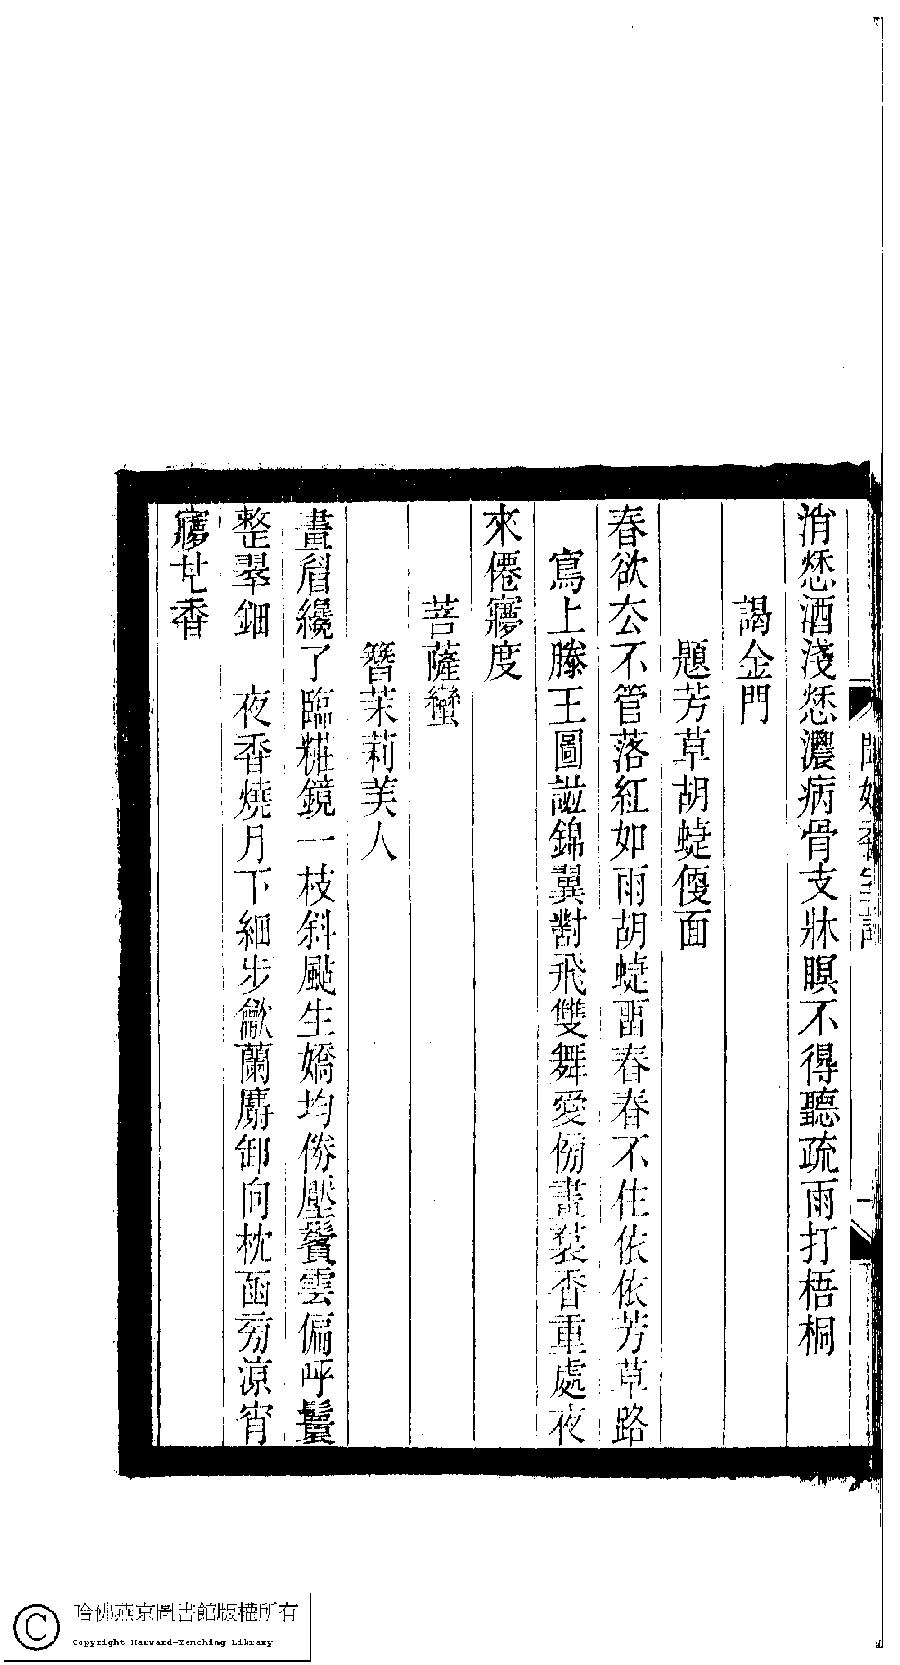 消愁酒淺愁濃病骨支牀瞑不得聽疏雨打梧桐
謁金門
題芳草胡蜨偄面
春欲厺不管落紅如雨胡蜨畱春春不住依依芳草路
寫上滕王圖譜錦翼對飛雙舞愛傍畫裠香重處夜
來僊㝱度
菩薩蠻
簪茉莉美人
畫眉纔了臨糚鏡一枝斜颭生嬌均倦壓鬢雲偏呼鬟
整翠鈿　夜香燒月下細步龡蘭麝卸向枕圅旁涼宵
㝱廿香
哈佛燕京圖書館版權所有
Copyright Harvard-Yenching Library